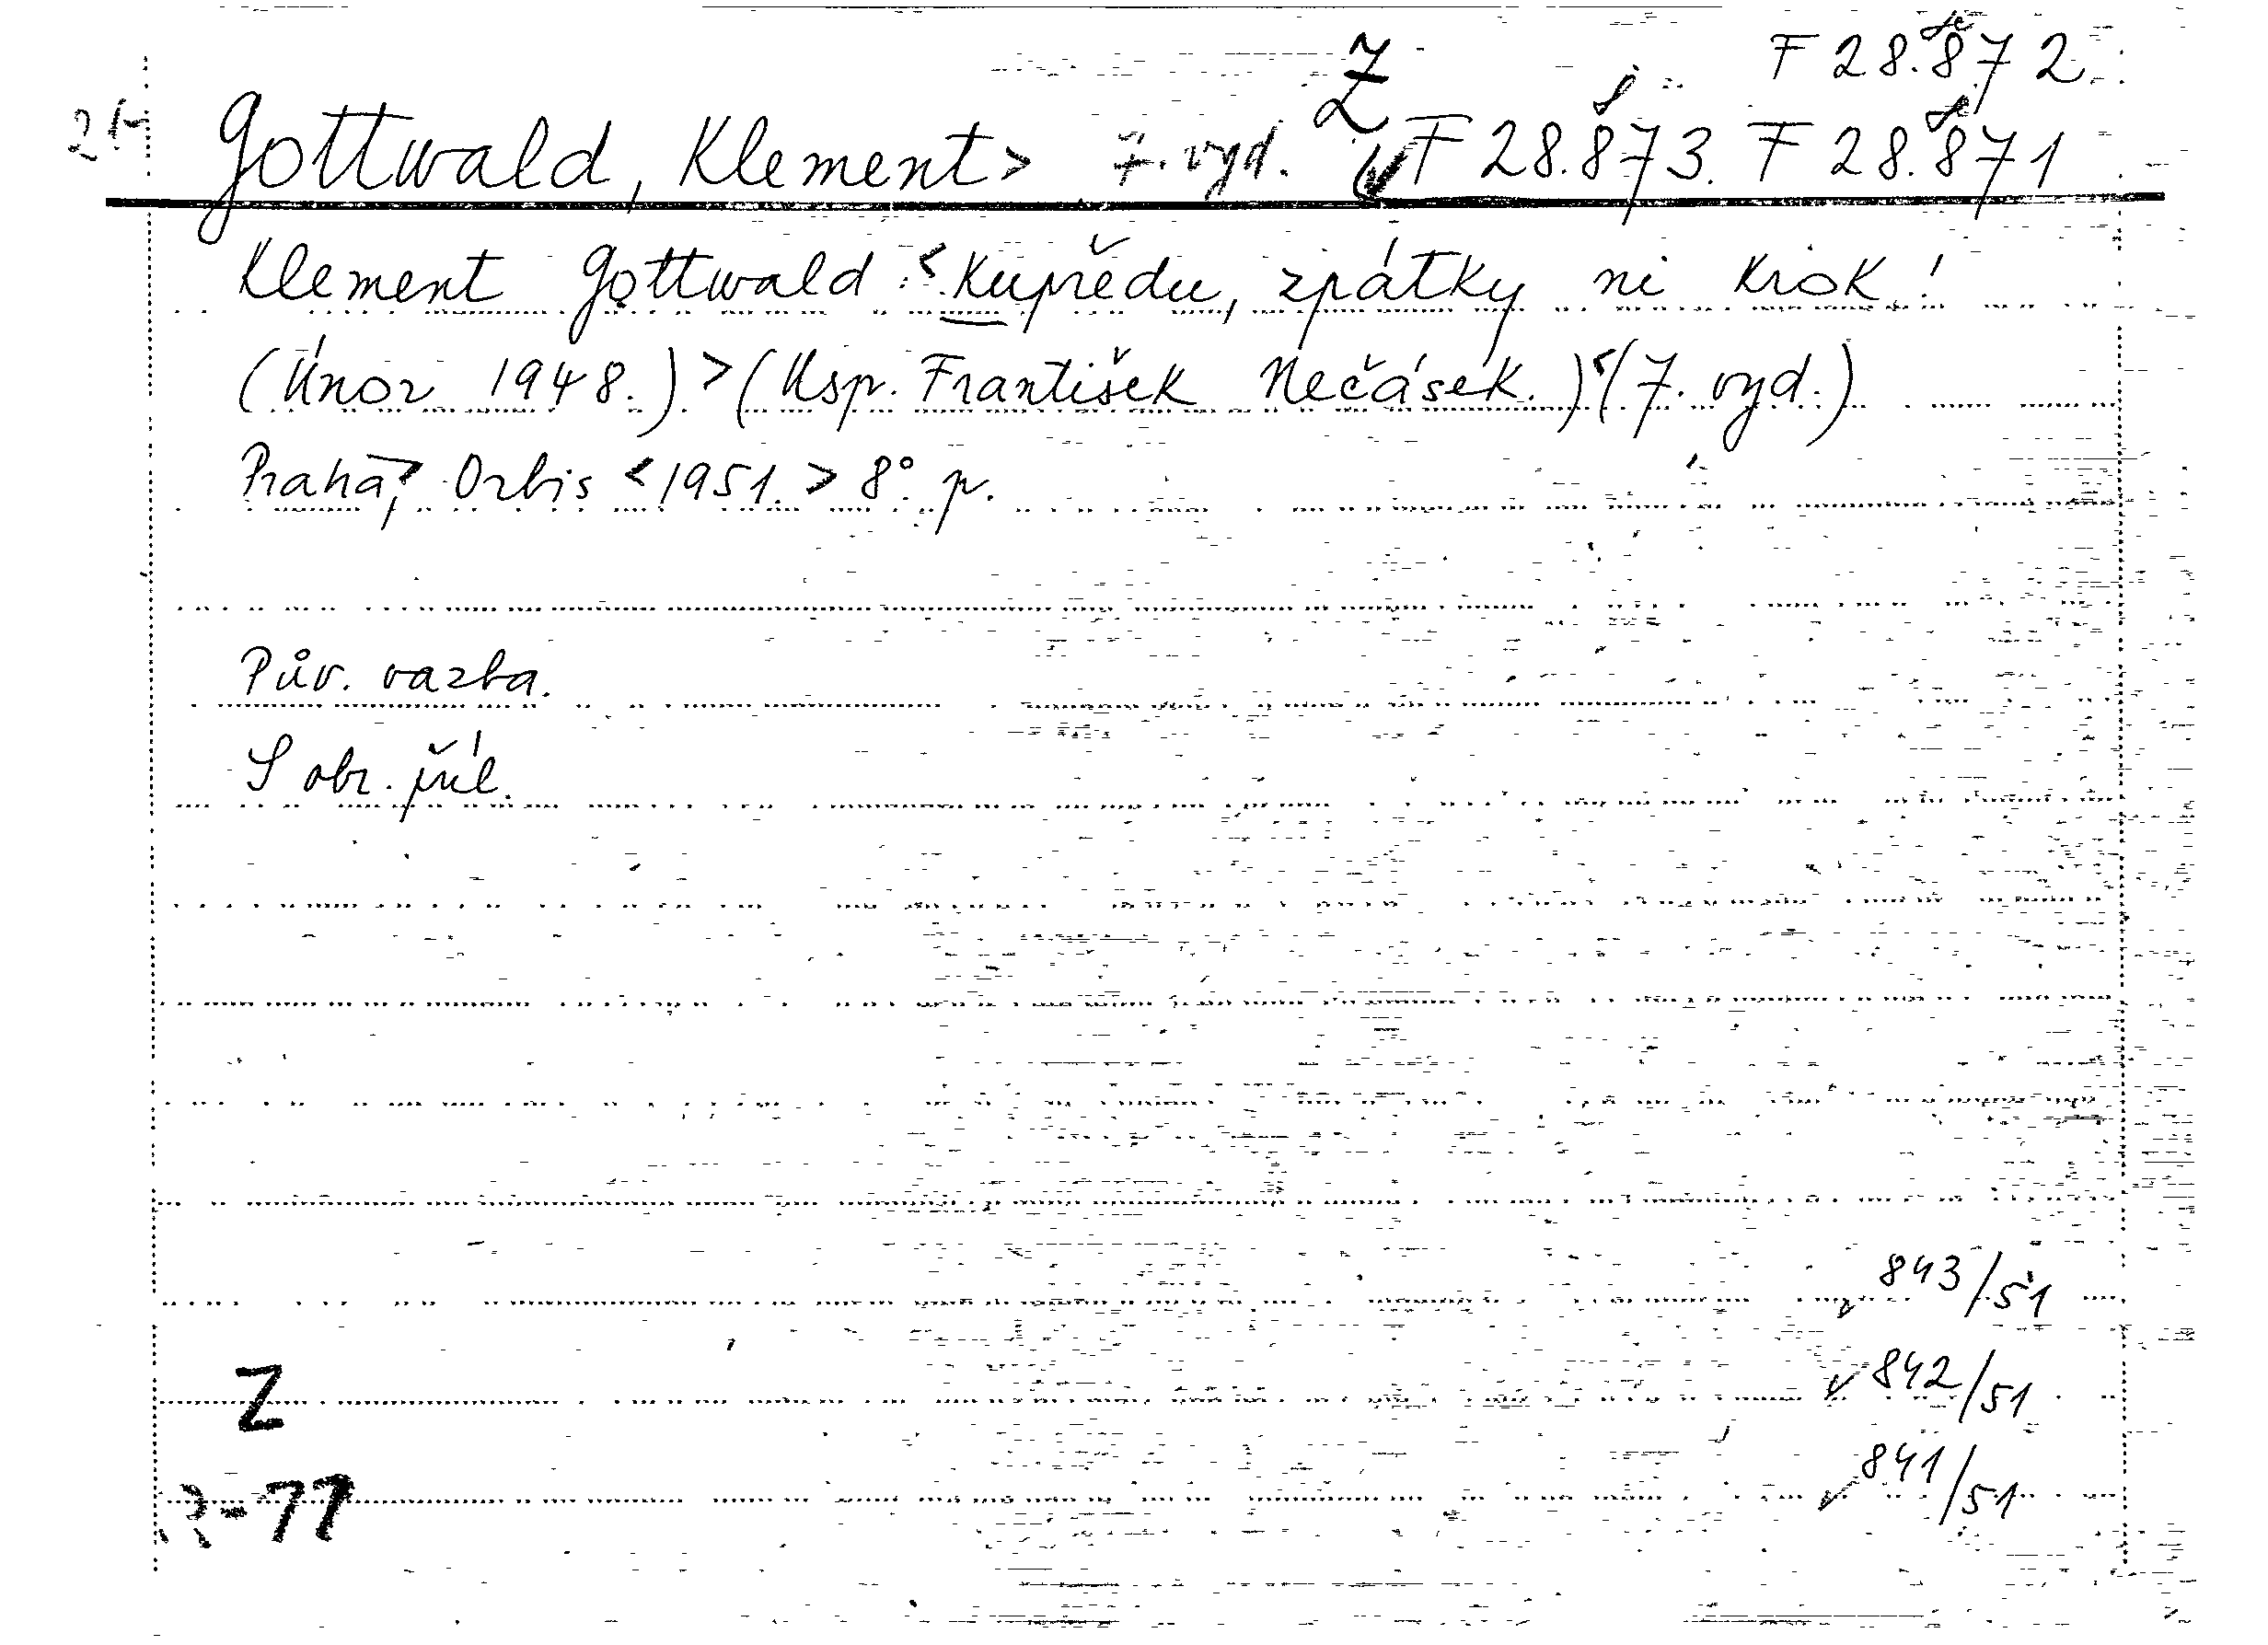 F 28.872
Gottwald, Klement> 7. vyd. Z F 28.873. F 28.871
Klement Gottwald: <Kupředu, zpátky ni krok!
(Únor 1948.)> (Usp. František Nečásek.) <(7. vyd.)
Praha>, Orbis <1951.> 8°. p.
Pův. vazba.
S obr. příl.
843/51
Z 842/51
841/51
-77